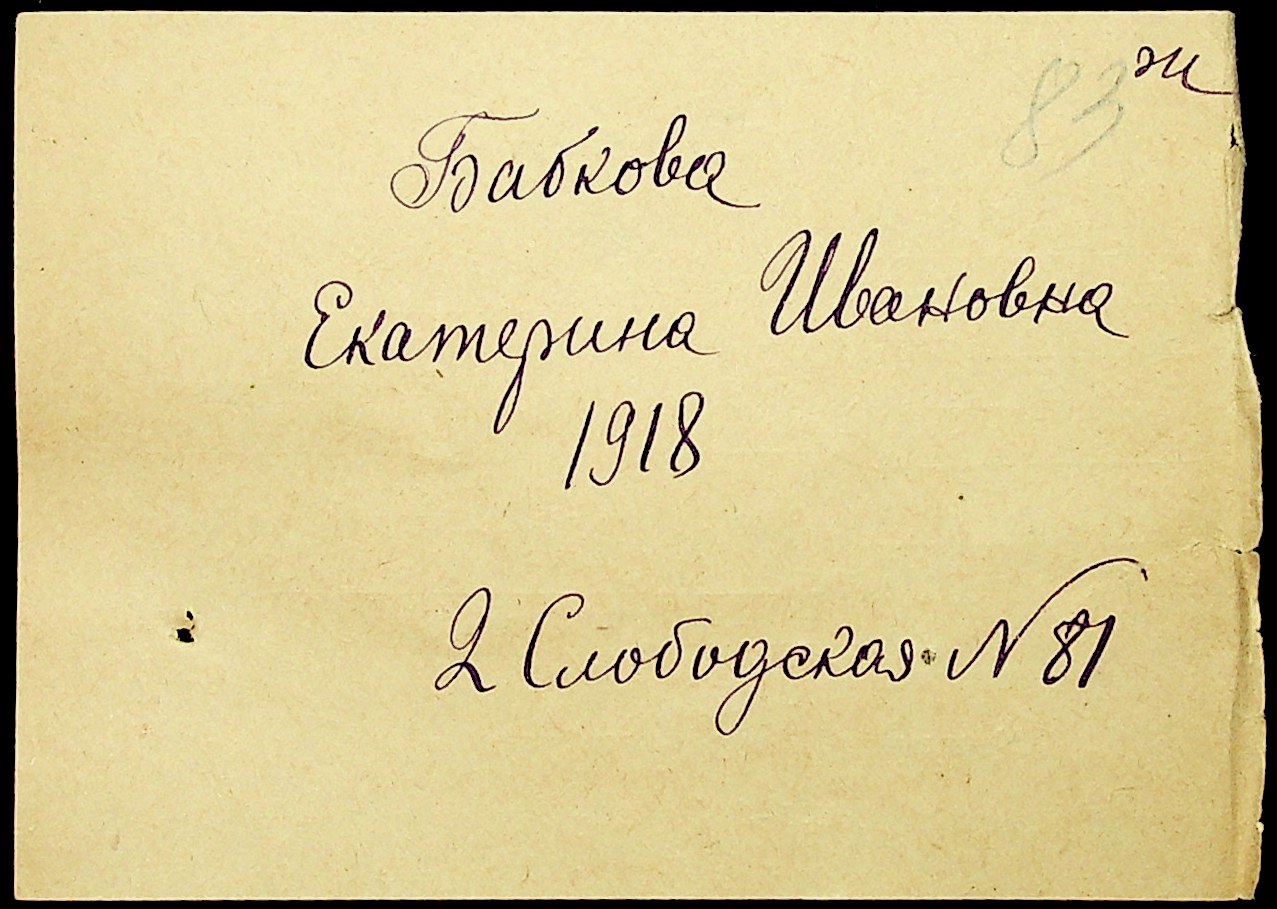 83 ж
Бабкова
Екатерина Ивановна
1918
2 Слободская N 81